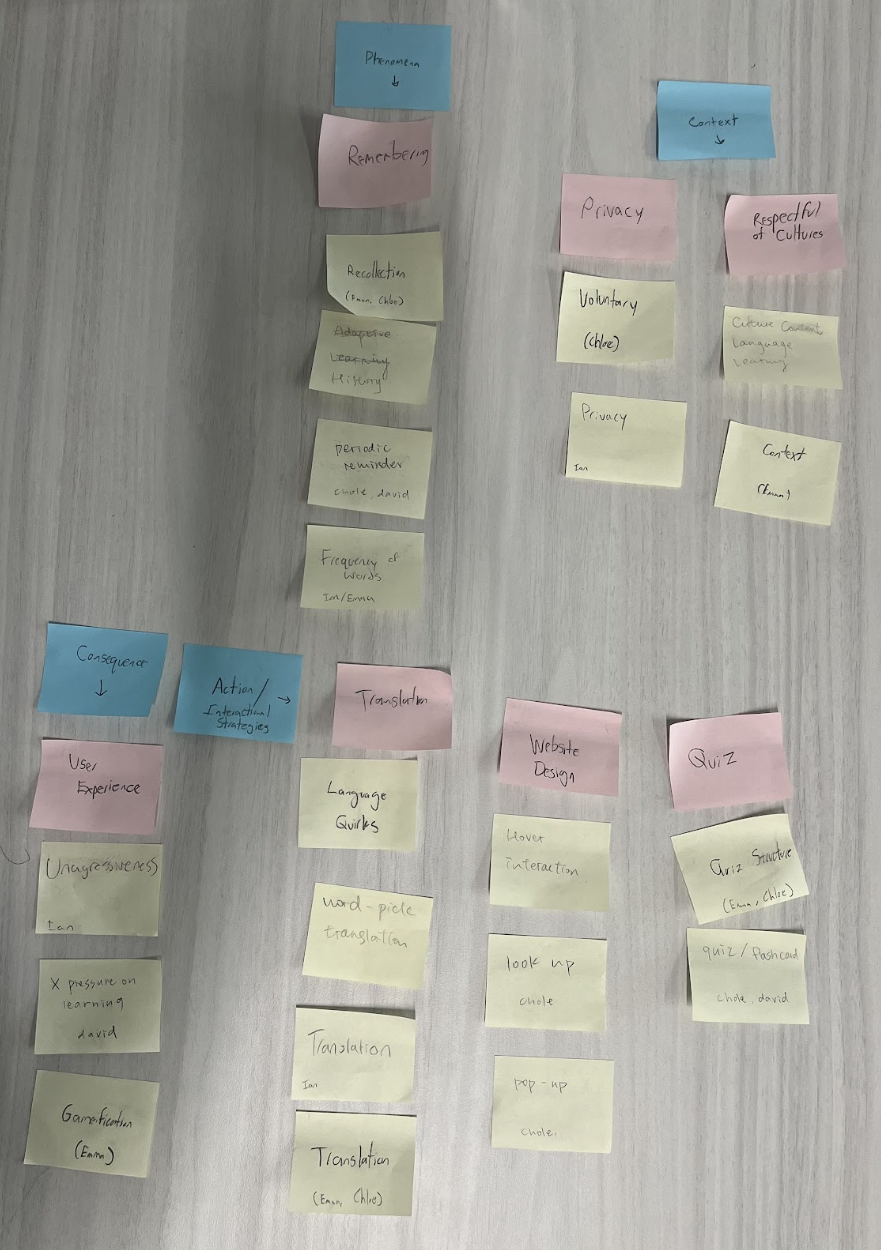 Phenomena
↓
Remembering
Recollection
(Emma, Chloe)
Adaptive
Learning
History
periodic
reminder
chole, david
Frequency of
words
Ian/Emma
Context
↓
Privacy
Voluntary
(Chloe)
Privacy
Ian
Respectful
of Cultures
Culture Context
Language
Learning
Context
(Emma)
Consequence
↓
User
Experience
Unagressiveness
Ian
X pressure on
learning
david
Gamification
(Emma)
Action/
Interactional
Strategies
→
Translation
Language
Quirks
word-pick
translation
Translation
Ian
Translation
(Emma, Chloe)
Website
Design
Hover
interaction
look up
chole
pop-up
chole.
Quiz
Quiz Structure
(Emma, Chloe)
quiz/flashcard
chole, david